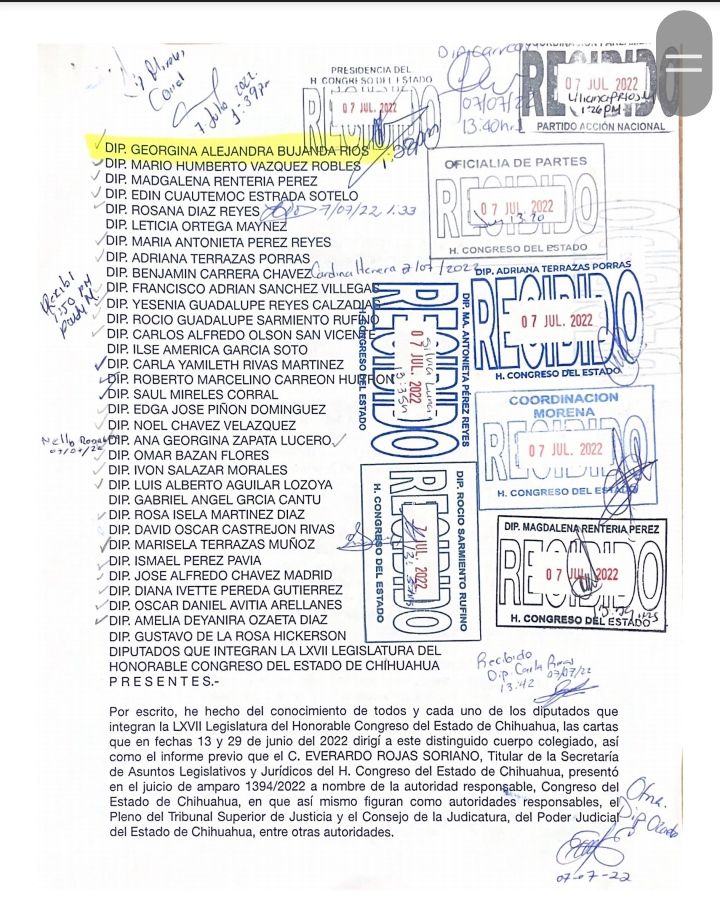 Dip Mireles
Corral
7 Julio 2022.
1:39 pm
PRESIDENCIA DEL
H. CONGRESO DEL ESTADO
RECIBIDO
07 JUL. 2022
1:38 pm
Dip. Carreon
07/07/22
13:40 hrs
RECIBIDO
07 JUL 2022
Liliana Rios M
1:26 PM
PARTIDO ACCIÓN NACIONAL
DIP. GEORGINA ALEJANDRA BUJANDA RIOS
DIP. MARIO HUMBERTO VAZQUEZ ROBLES
DIP. MADGALENA RENTERIA PEREZ
DIP. EDIN CUAUTEMOC ESTRADA SOTELO
DIP. ROSANA DIAZ REYES 7/07/22 1:33
DIP. LETICIA ORTEGA MAYNEZ
DIP. MARIA ANTONIETA PEREZ REYES
DIP. ADRIANA TERRAZAS PORRAS
DIP. BENJAMIN CARRERA CHAVEZ Carolina Herrera 7/07/2022
DIP. FRANCISCO ADRIAN SANCHEZ VILLEGAS
DIP. YESENIA GUADALUPE REYES CALZADIAS
DIP. ROCIO GUADALUPE SARMIENTO RUFINO
DIP. CARLOS ALFREDO OLSON SAN VICENTE
DIP. ILSE AMERICA GARCIA SOTO
DIP. CARLA YAMILETH RIVAS MARTINEZ
DIP. ROBERTO MARCELINO CARREON HUITRON
DIP. SAUL MIRELES CORRAL
DIP. EDGA JOSE PIÑON DOMINGUEZ
DIP. NOEL CHAVEZ VELAZQUEZ
DIP. ANA GEORGINA ZAPATA LUCERO
DIP. OMAR BAZAN FLORES
DIP. IVON SALAZAR MORALES
DIP. LUIS ALBERTO AGUILAR LOZOYA
DIP. GABRIEL ANGEL GRCIA CANTU
DIP. ROSA ISELA MARTINEZ DIAZ
DIP. DAVID OSCAR CASTREJON RIVAS
DIP. MARISELA TERRAZAS MUÑOZ
DIP. ISMAEL PEREZ PAVIA
DIP. JOSE ALFREDO CHAVEZ MADRID
DIP. DIANA IVETTE PEREDA GUTIERREZ
DIP. OSCAR DANIEL AVITIA ARELLANES
DIP. AMELIA DEYANIRA OZAETA DIAZ
DIP. GUSTAVO DE LA ROSA HICKERSON
DIPUTADOS QUE INTEGRAN LA LXVII LEGISLATURA DEL
HONORABLE CONGRESO DEL ESTADO DE CHIHUAHUA
P R E S E N T E S.-
Recibi
1:30 PM
07/07/22
OFICIALIA DE PARTES
RECIBIDO
07 JUL. 2022
H. CONGRESO DEL ESTADO
DIP. ADRIANA TERRAZAS PORRAS
RECIBIDO
07 JUL. 2022
H. CONGRESO DEL ESTADO
DIP. MA. ANTONIETA PÉREZ REYES
RECIBIDO
07 JUL. 2022
Silvia Luna
H. CONGRESO DEL ESTADO
COORDINACION
MORENA
RECIBIDO
07 JUL. 2022
H. CONGRESO DEL ESTADO
DIP. ROCIO SARMIENTO RUFINO
RECIBIDO
JUL. 2022
H. CONGRESO DEL ESTADO
DIP. MAGDALENA RENTERIA PEREZ
RECIBIDO
07 JUL 2022
H. CONGRESO DEL ESTADO
Recibido
Dip. Carla Rivas
13:42 07/07/22
Por escrito, he hecho del conocimiento de todos y cada uno de los diputados que
integran la LXVII Legislatura del Honorable Congreso del Estado de Chihuahua, las cartas
que en fechas 13 y 29 de junio del 2022 dirigí a este distinguido cuerpo colegiado, así
como el informe previo que el C. EVERARDO ROJAS SORIANO, Titular de la Secretaría
de Asuntos Legislativos y Jurídicos del H. Congreso del Estado de Chihuahua, presentó
en el juicio de amparo 1394/2022 a nombre de la autoridad responsable, Congreso del
Estado de Chihuahua, en que así mismo figuran como autoridades responsables, el
Pleno del Tribunal Superior de Justicia y el Consejo de la Judicatura, del Poder Judicial
del Estado de Chihuahua, entre otras autoridades.
07-07-22